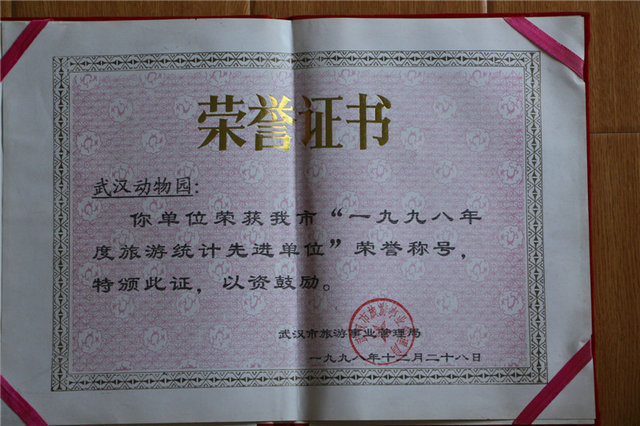 荣誉证书
武汉动物园:
你单位荣获我市“一九九八年
度旅游统计先进单位”荣誉称号，
特颁此证，以资鼓励。
武汉市旅游事业管理局
一九九八年十二月二十八日